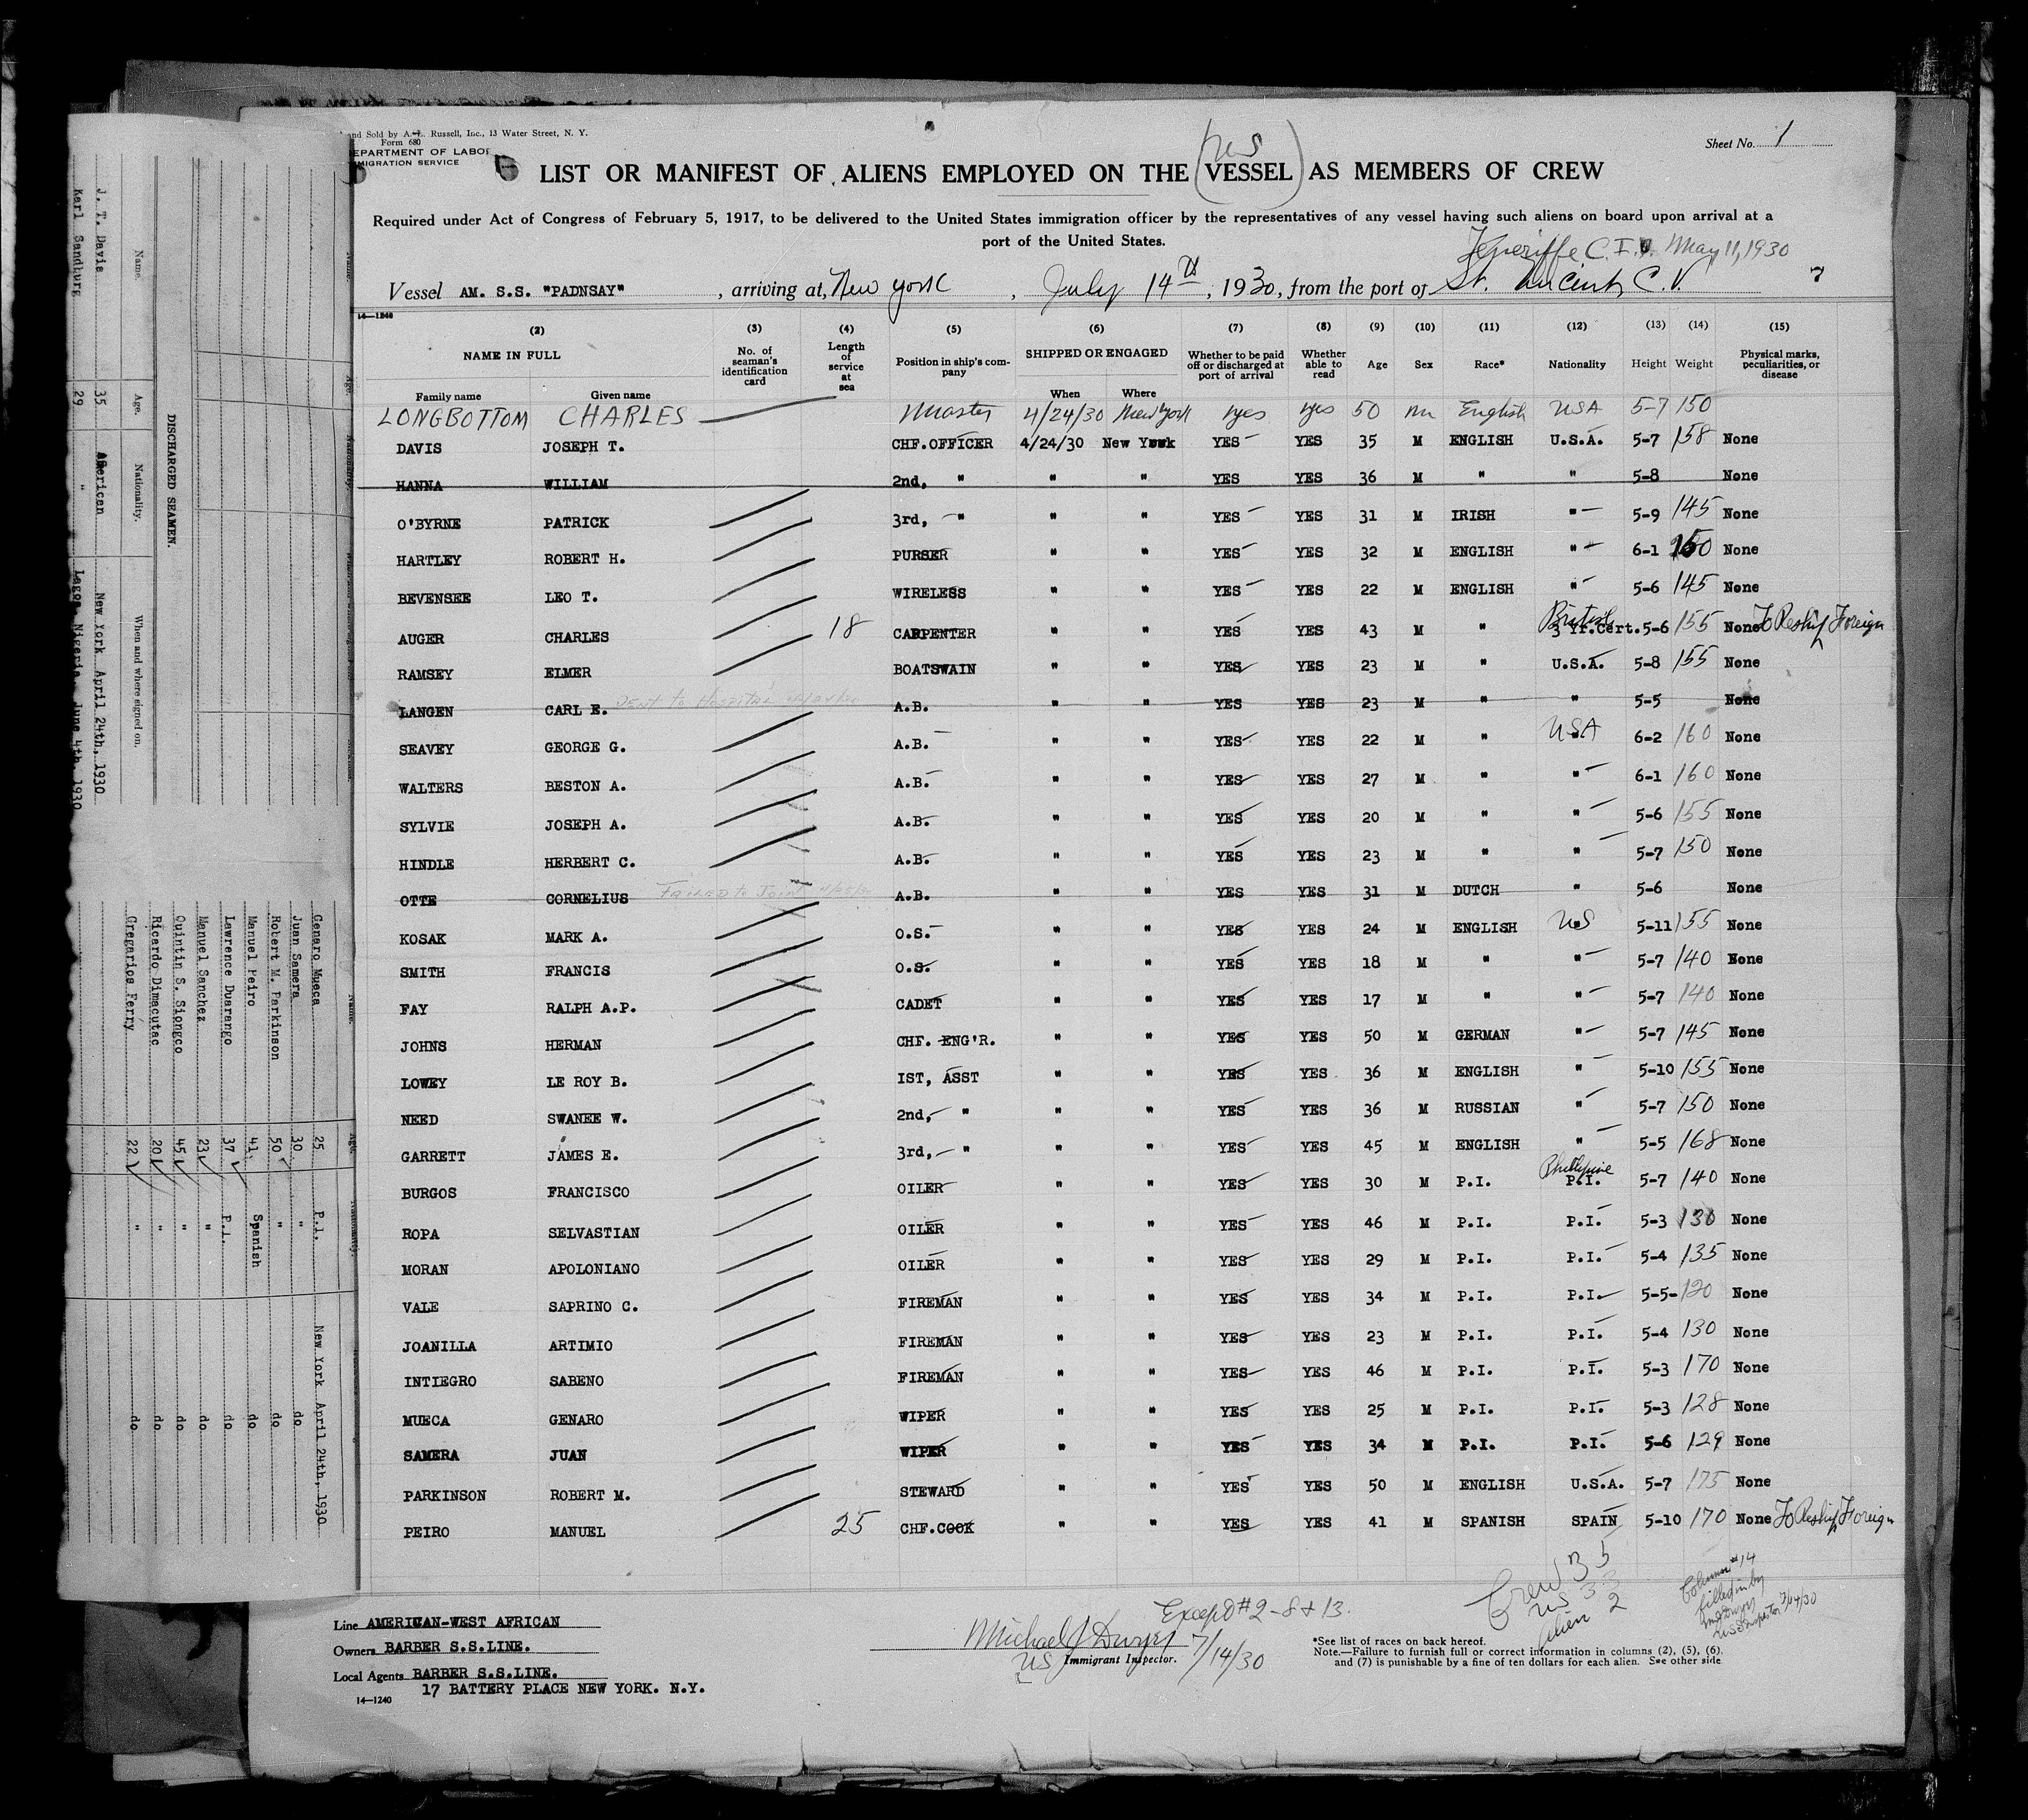 and Sold by A. L. Russell, Inc., 13 Water Street, N. Y.
Form 680
DEPARTMENT OF LABOR
IMMIGRATION SERVICE
Sheet No. 1
US
LIST OR MANIFEST OF ALIENS EMPLOYED ON THE VESSEL AS MEMBERS OF CREW
Required under Act of Congress of February 5, 1917, to be delivered to the United States immigration officer by the representatives of any vessel having such aliens on board upon arrival at a
port of the United States.
Teneriffe C. I. May 11, 1930
Vessel AM. S.S. "PADNSAY", arriving at, New York, July 14th, 1930, from the port of St. Vincent, C.V.
14—1240
(2) (3) (4) (5) (6) (7) (8) (9) (10) (11) (12) (13) (14) (15)
NAME IN FULL No. of seaman's identification card Length of service at sea Position in ship's company SHIPPED OR ENGAGED Whether to be paid off or discharged at port of arrival Whether able to read Age Sex Race* Nationality Height Weight Physical marks, peculiarities, or disease
Family name Given name When Where
LONGBOTTOM CHARLES Master 4/24/30 New York yes yes 50 m English USA 5-7 150
DAVIS JOSEPH T. CHF.OFFICER 4/24/30 New York YES YES 35 M ENGLISH U.S.A. 5-7 158 None
HANNA WILLIAM 2nd, " " " YES YES 36 M " " 5-8 None
O'BYRNE PATRICK 3rd, " " " YES YES 31 M IRISH " 5-9 145 None
HARTLEY ROBERT H. PURSER " " YES YES 32 M ENGLISH " 6-1 150 None
BEVENSEE LEO T. WIRELESS " " YES YES 22 M ENGLISH " 5-6 145 None
AUGER CHARLES 18 CARPENTER " " YES YES 43 M " British 3 Yr.Cert. 5-6 155 None To Reship Foreign
RAMSEY ELMER BOATSWAIN " " YES YES 23 M " U.S.A. 5-8 155 None
LANGEN CARL E. Sent to Hospital 4/24/30 A.B. " " YES YES 23 M " " 5-5 None
SEAVEY GEORGE G. A.B. " " YES YES 22 M " USA 6-2 160 None
WALTERS BESTON A. A.B. " " YES YES 27 M " " 6-1 160 None
SYLVIE JOSEPH A. A.B. " " YES YES 20 M " " 5-6 155 None
HINDLE HERBERT C. A.B. " " YES YES 23 M " " 5-7 150 None
OTTE CORNELIUS FAILED to JOIN 4/25/30 A.B. " " YES YES 31 M DUTCH " 5-6 None
KOSAK MARK A. O.S. " " YES YES 24 M ENGLISH US 5-11 155 None
SMITH FRANCIS O.S. " " YES YES 18 M " " 5-7 140 None
FAY RALPH A.P. CADET " " YES YES 17 M " " 5-7 140 None
JOHNS HERMAN CHF. ENG'R. " " YES YES 50 M GERMAN " 5-7 145 None
LOWEY LE ROY B. IST, ASST " " YES YES 36 M ENGLISH " 5-10 155 None
NEED SWANEE W. 2nd, " " " YES YES 36 M RUSSIAN " 5-7 150 None
GARRETT JAMES E. 3rd, " " " YES YES 45 M ENGLISH " 5-5 168 None
BURGOS FRANCISCO OILER " " YES YES 30 M P.I. Phillipine P.I. 5-7 140 None
ROPA SELVASTIAN OILER " " YES YES 46 M P.I. P.I. 5-3 130 None
MORAN APOLONIANO OILER " " YES YES 29 M P.I. P.I. 5-4 135 None
VALE SAPRINO C. FIREMAN " " YES YES 34 M P.I. P.I. 5-5- 120 None
JOANILLA ARTIMIO FIREMAN " " YES YES 23 M P.I. P.I. 5-4 130 None
INTIEGRO SABENO FIREMAN " " YES YES 46 M P.I. P.I. 5-3 170 None
MUECA GENARO WIPER " " YES YES 25 M P.I. P.I. 5-3 128 None
SAMERA JUAN WIPER " " YES YES 34 M P.I. P.I. 5-6 129 None
PARKINSON ROBERT M. STEWARD " " YES YES 50 M ENGLISH U.S.A. 5-7 175 None
PEIRO MANUEL 25 CHF.COOK " " YES YES 41 M SPANISH SPAIN 5-10 170 None To Reship Foreign
Crew 35
US 33
Alien 2
Column #14
filled in by
US Inspector 7/14/30
Line AMERICAN-WEST AFRICAN
Owners BARBER S.S.LINE.
Local Agents BARBER S.S.LINE.
17 BATTERY PLACE NEW YORK. N.Y.
14—1240
Except #2-8 & 13.
Michael J Dwyer 7/14/30
US Immigrant Inspector.
*See list of races on back hereof.
Note.—Failure to furnish full or correct information in columns (2), (5), (6),
and (7) is punishable by a fine of ten dollars for each alien. See other side
DISCHARGED SEAMEN.
Name. Age. Nationality. When and where signed on.
J. T. Davis 35 American New York April 24th, 1930
Karl Sandburg 29 " Lagos, Nigeria. June 4th, 1930
Name. Age. Nationality.
Genaro Mueca 25 P.I. New York April 24th, 1930
Juan Samera 30 " do
Robert M. Parkinson 50 " do
Manuel Peiro 41 Spanish do
Lawrence Duarango 37 P.I. do
Manuel Sanchez 23 " do
Quintin S. Siongco 45 " do
Ricardo Dimacutac 20 " do
Gregarios Ferry 22 " do